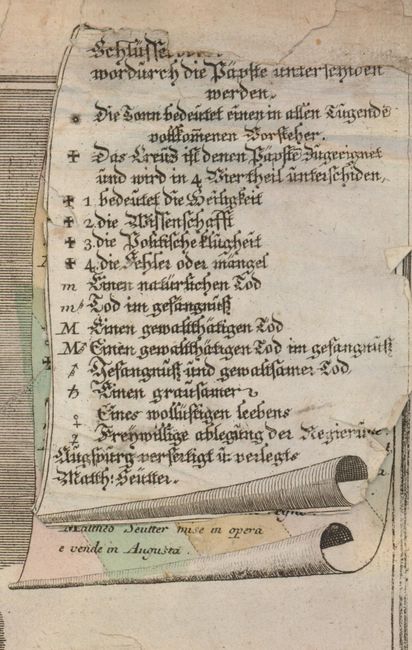 Schlüsse
wordurch die Päpste unterschiden
werden.
☉ Die Sonn bedeütet einen in allen Tugendē
vollkom̄enen Vorsteher.
✠ Das Creüß ist denen Päpstē Zugeeignet
und wird in 4 Viertheil unterschiden,
✠ 1. bedeütet die Heiligkeit
✠ 2. die Wissenschafft
✠ 3. die Politische klügheit
✠ 4. die Fehler oder mängel
m Einen natürlichen Tod
Tod im gefängnuß
M Einen gewaltthätigen Tod
Einen gewaltthätigen Tod im gefängnuß
Gefängnuß und gewaltsamer Tod
♄ Einen grausamen
♀ Eines wollüstigen leebens
☿ Freywillige ablegung der Regierū
Augspurg verfertigt u: verlegts
Matth: Seutter.
Mattheo Seutter mise in opera
e vende in Augusta.